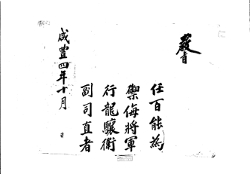 教旨
任百能為
禦侮將軍
行龍驤衛
副司直者
咸豐四年十月
日